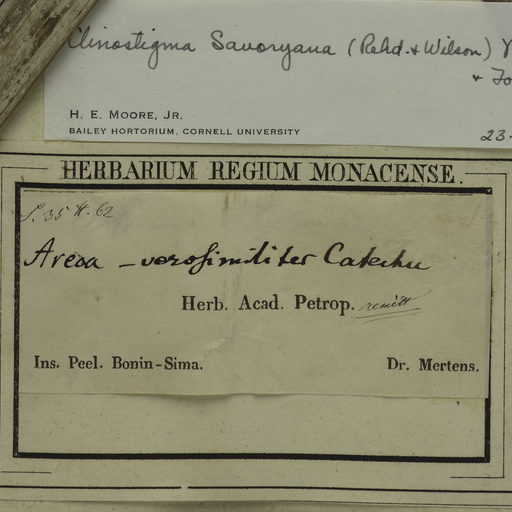 Clinostigma Savoryana (Rehd. & Wilson)
&
H. E. MOORE, JR.
BAILEY HORTORIUM, CORNELL UNIVERSITY
23-
HERBARIUM REGIUM MONACENSE.
Areca - verosimiliter Catechu
Herb. Acad. Petrop. remisit
Ins. Peel. Bonin-Sima.
Dr. Mertens.